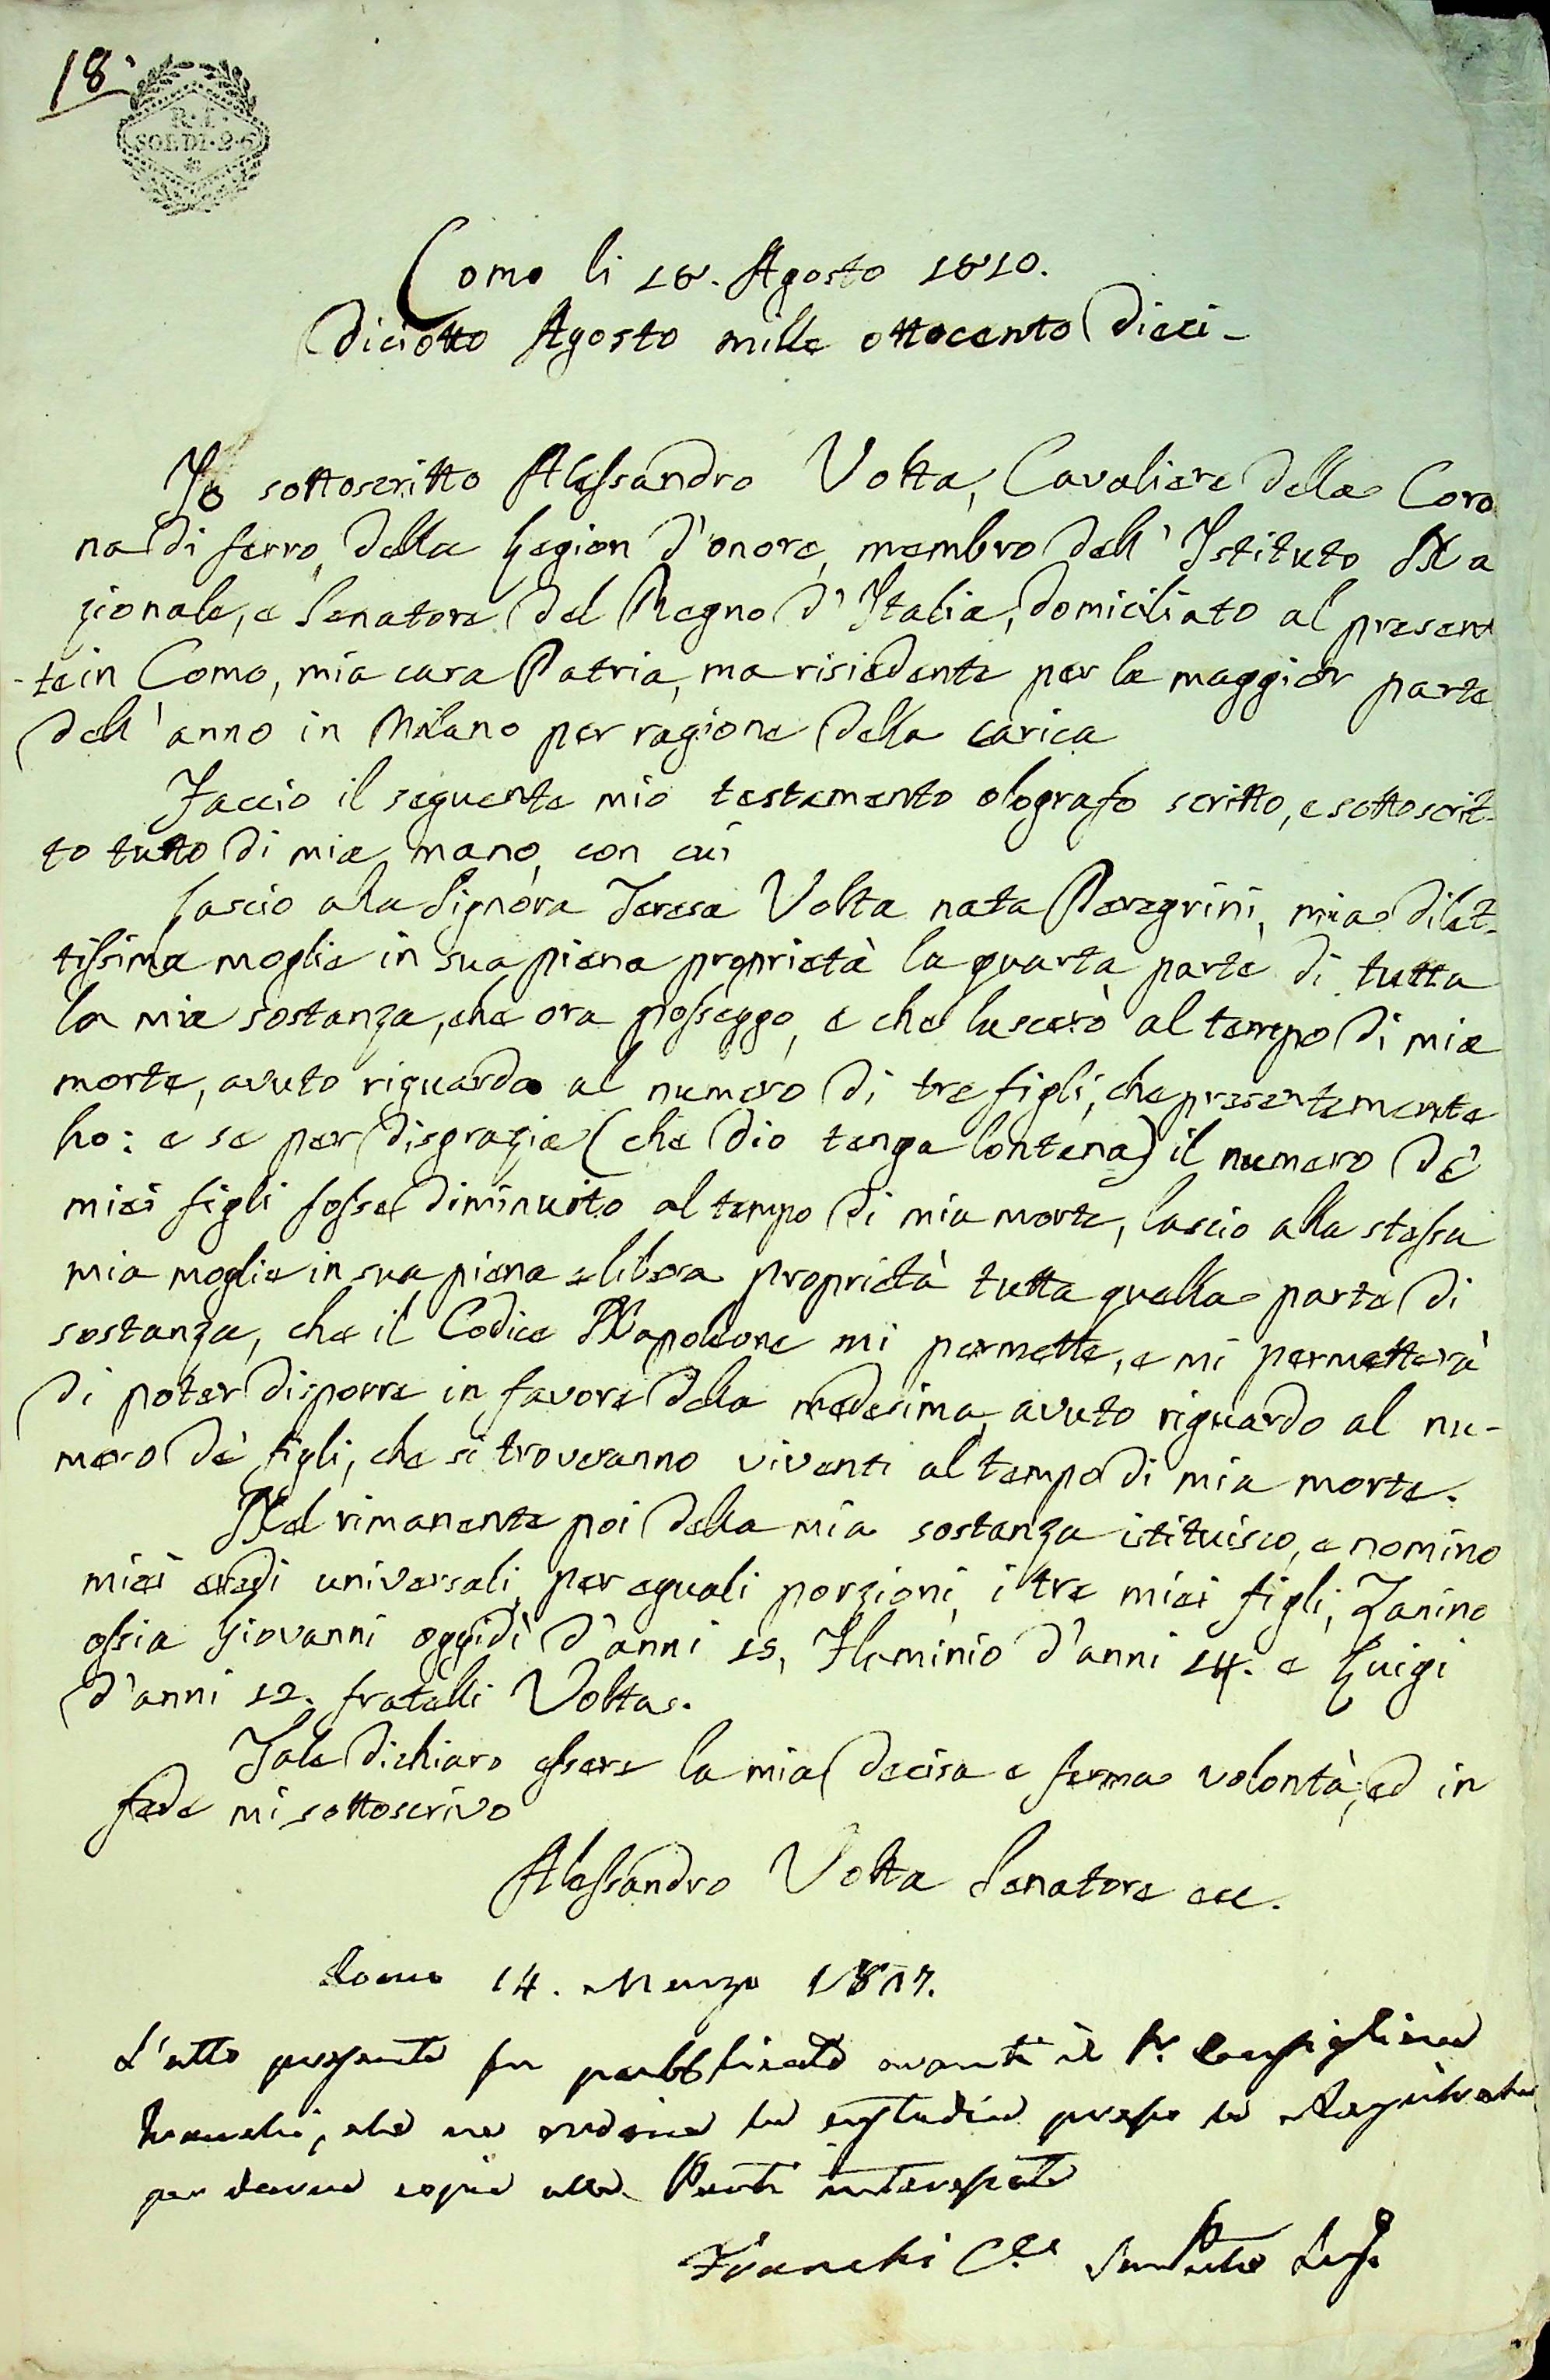 18.
R. I.
SOLDI. 2. 6
Como li 18. Agosto 1810.
Diciotto Agosto mille ottocento Dieci -
Io sottoscritto Alessandro Volta, Cavaliere della Coro
na di ferro, della Legion d'onore, membro dell' Istituto Na
zionale, e Senatore del Regno d'Italia, domiciliato al presen
- te in Como, mia cara Patria, ma risiedente per la maggior parte
dell' anno in Milano per ragione della carica
Faccio il seguente mio testamento olografo scritto, e sottoscrit-
to tutto di mia mano, con cui
Lascio alla Signora Teresa Volta nata Peregrini, mia dilet-
tissima moglie in sua piena proprietà la quarta parte di tutta
la mia sostanza, che ora posseggo, e che lascerò al tempo di mia
morte, avuto riguardo al numero di tre figli, che presentemente
ho: e se per disgrazia (che Dio tenga lontana) il numero de'
miei figli fosse diminuito al tempo di mia morte, lascio alla stessa
mia moglie in sua piena e libera proprietà tutta quella parte di
sostanza, che il Codice Napoleone mi permette, e mi permetterà
di poter disporre in favore della medesima, avuto riguardo al nu-
mero de' figli, che si troveranno viventi al tempo di mia morte.
Nel rimanente poi della mia sostanza istituisco, e nomino
miei eredi universali, per eguali porzioni, i tre miei figli, Zanino
ossia Giovanni oggidì d'anni 15, Flaminio d'anni 14. e Luigi
d'anni 12. fratelli Volta.
Tale dichiaro essere la mia decisa e ferma volontà, ed in
fede mi sottoscrivo
Alessandro Volta Senatore ecc.
Como 14. Marzo 1827.
L'atto presente fu pubblicato avanti il Sr. Consigliere
Franchi, che ne ordina la custodia presso la Registratura
per darne copia alle Parti interessate
Franchi